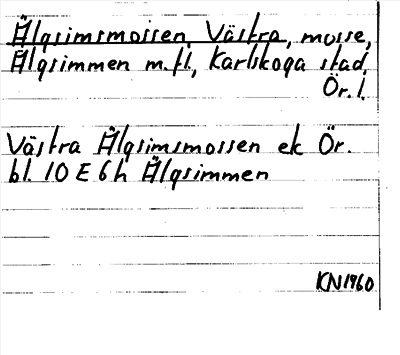 Älgsimsmossen, Västra, mosse,
Älgsimmen m.fl., Karlskoga stad,
Ör.l.
Västra Älgsimsmossen ek Ör.
bl. 10 E 6 h Älgsimmen
KN1960